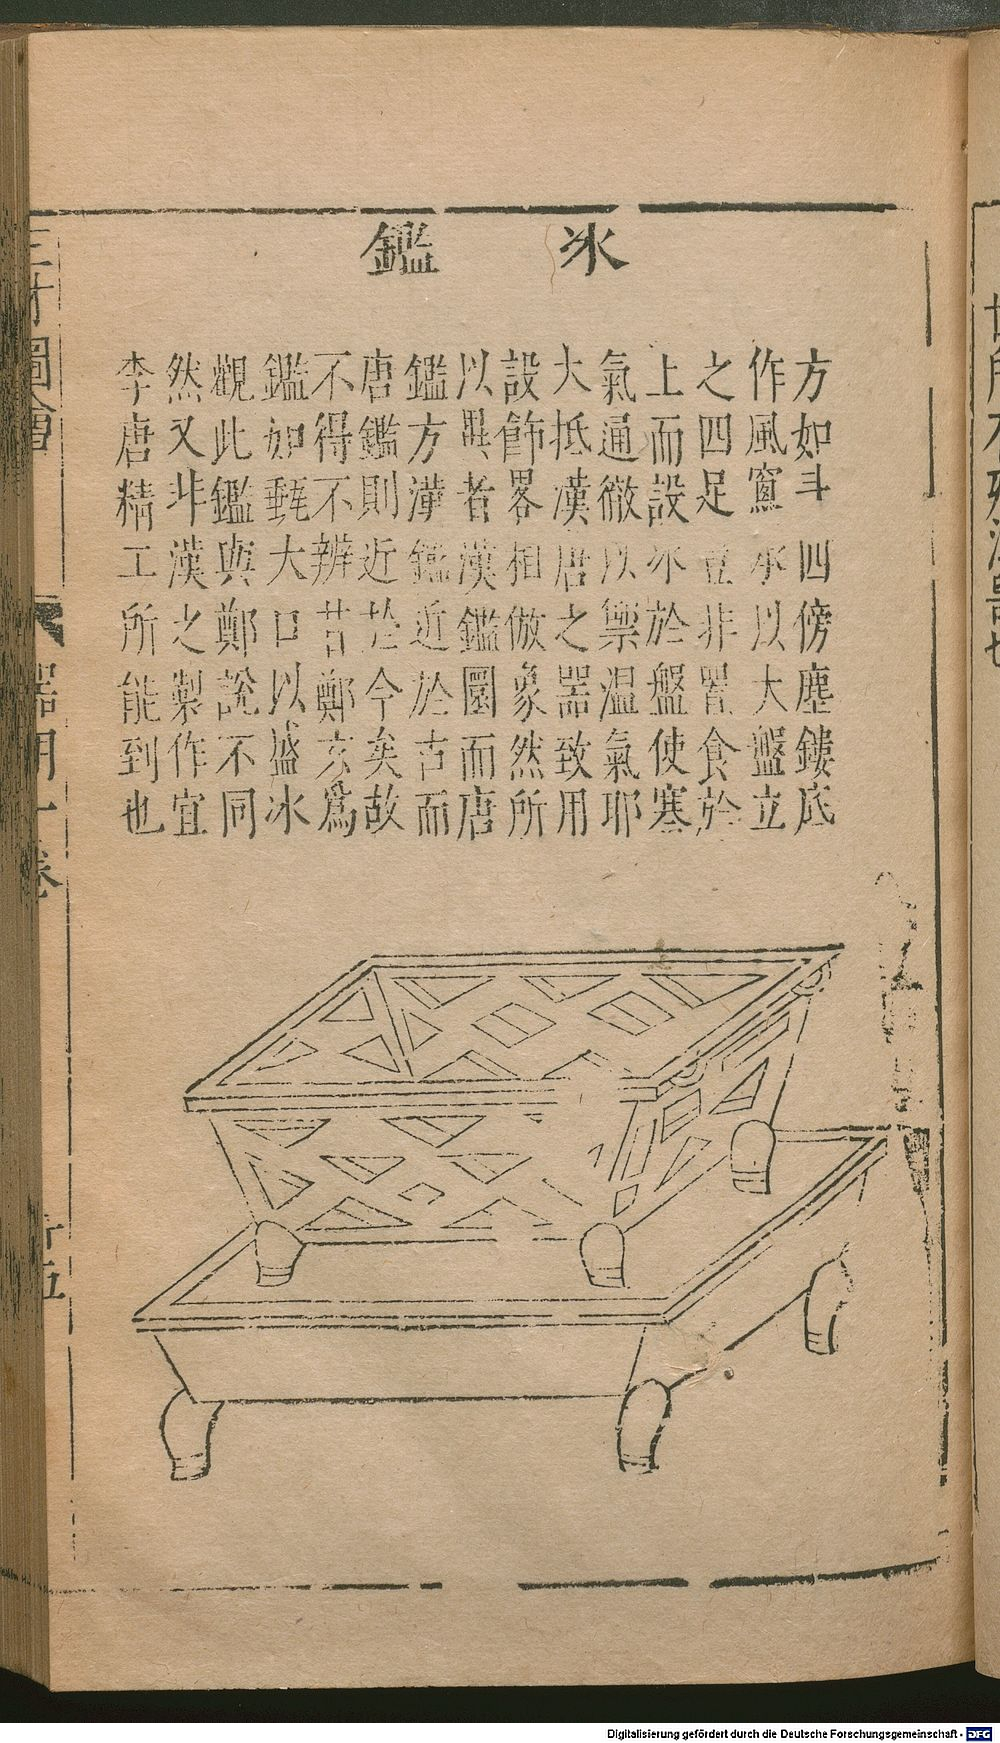 冰鑑
方如斗四傍塵鏤底
作風窻承以大盤立
之四足豈非置食於
上而設冰於盤使寒
氣通徹以禦温氣耶
大抵漢唐之器致用
設飾畧相倣象然所
以異者漢鑑圜而唐
鑑方漢鑑近於古而
唐鑑則近於今矣故
不得不辨昔鄭玄爲
鑑如甀大口以盛冰
觀此鑑與鄭說不同
然又非漢之製作宜
李唐精工所能到也
三才圖會
器用一卷
十五
Digitalisierung gefördert durch die Deutsche Forschungsgemeinschaft - DFG